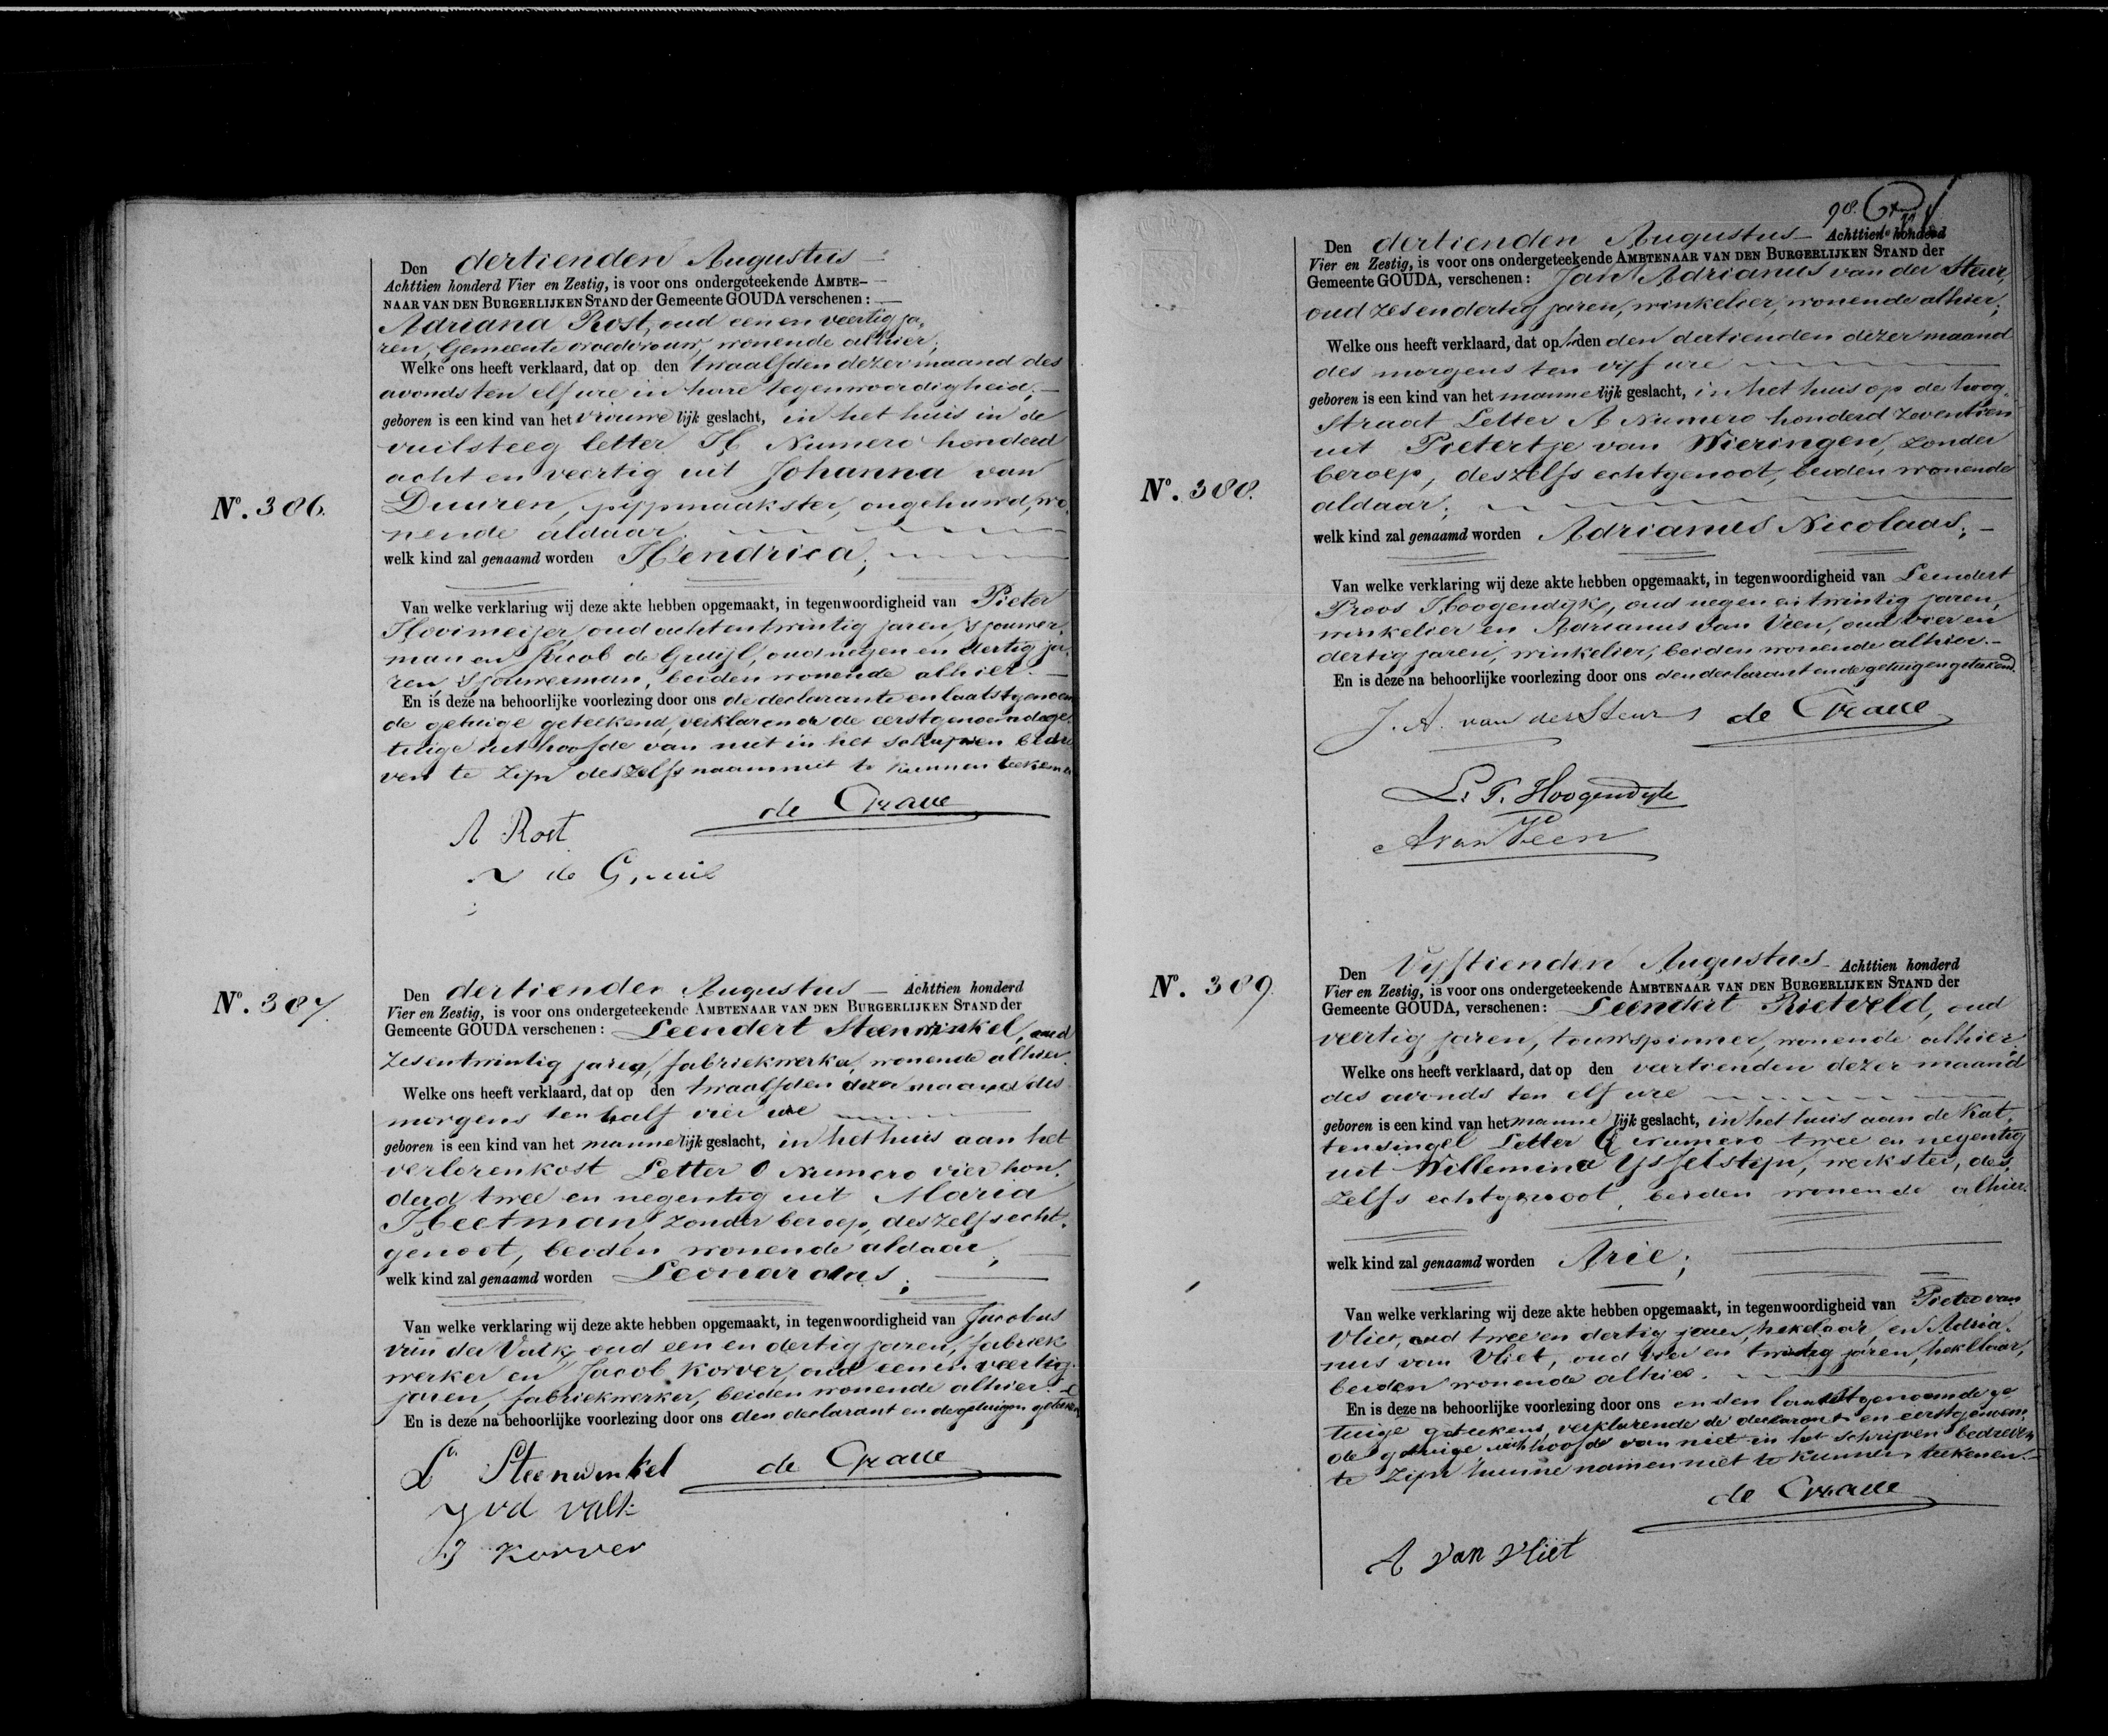 Nº. 386.
Den dertienden Augustus
Achttien honderd Vier en Zestig, is voor ons ondergeteekende AMBTE-
NAAR VAN DEN BURGERLIJKEN STAND der Gemeente GOUDA verschenen:
Adriana Rost, oud een en veertig ja-
ren, Gemeente vroedvrouw, wonende alhier;
Welke ons heeft verklaard, dat op den twaalfden dezer maand des
avonds ten elf ure in hare tegenwoordigheid,
geboren is een kind van het vrouwelijk geslacht, in het huis in de
vuilsteeg letter H Numero honderd
acht en veertig uit Johanna van
Duuren, pijpmaakster, ongehuwd, wo-
nende aldaar
welk kind zal genaamd worden Hendrica;
Van welke verklaring wij deze akte hebben opgemaakt, in tegenwoordigheid van Pieter
Hooimeijer, oud achtentwintig jaren, sjouwer-
man en Jacob de Gruijl, oud negen en dertig ja-
ren, sjouwerman, beiden wonende alhier.
En is deze na behoorlijke voorlezing door ons de declarante en laatstgenoem
de getuige geteekend, verklarende de eerstgenoemde ge-
tuige uit hoofde van niet in het schrijven bedre
ven te zijn deszelfs naam niet te kunnen teekenen
de Grave
A Rost
de Gruil
Nº. 387.
Den dertienden Augustus Achttien honderd
Vier en Zestig, is voor ons ondergeteekende AMBTENAAR VAN DEN BURGERLIJKEN STAND der
Gemeente GOUDA verschenen: Leendert Steenwinkel, oud
zesentwintig jaren, fabriekwerker, wonende alhier.
Welke ons heeft verklaard, dat op den twaalfden dezer maand des
morgens ten half vier ure
geboren is een kind van het mannelijk geslacht, in het huis aan het
verlorenkost Letter O Numero vier hon-
derd twee en negentig uit Maria
Heetman, zonder beroep, deszelfs echt-
genoot, beiden wonende aldaar,
welk kind zal genaamd worden Leonardus;
Van welke verklaring wij deze akte hebben opgemaakt, in tegenwoordigheid van Jacobus
van der Valk, oud een en dertig jaren, fabriek
werker en Jacob Korver, oud een en veertig
jaren, fabriekwerker, beiden wonende alhier.
En is deze na behoorlijke voorlezing door ons den declarant en de getuigen geteekend
Ln Steenwinkel de Grave
J vd valk
J Korver
98.
Nº. 388.
Den dertienden Augustus Achttien honderd
Vier en Zestig, is voor ons ondergeteekende AMBTENAAR VAN DEN BURGERLIJKEN STAND der
Gemeente GOUDA, verschenen: Jan Adrianus van der Steur,
oud zesendertig jaren, winkelier, wonende alhier;
Welke ons heeft verklaard, dat op den den dertienden dezer maand
des morgens ten vijf ure
geboren is een kind van het mannelijk geslacht, in het huis op de hoog-
straat Letter A Numero honderd zeventien
uit Pietertje van Wieringen, zonder
beroep, deszelfs echtgenoot, beiden wonende
aldaar;
welk kind zal genaamd worden Adrianus Nicolaas;
Van welke verklaring wij deze akte hebben opgemaakt, in tegenwoordigheid van Leendert
Proos Hoogendijk, oud negen en twintig jaren,
winkelier en Adrianus van Veen, oud vier en
dertig jaren, winkelier, beiden wonende alhier.
En is deze na behoorlijke voorlezing door ons den declarant en de getuigen geteekend.
J. A. van der Steur de Grave
L. P. Hoogendijk
A van Veen
Nº. 389.
Den Vijftienden Augustus Achttien honderd
Vier en Zestig, is voor ons ondergeteekende AMBTENAAR VAN DEN BURGERLIJKEN STAND der
Gemeente GOUDA, verschenen: Leendert Rietveld, oud
veertig jaren, touwspinner, wonende alhier.
Welke ons heeft verklaard, dat op den veertienden dezer maand
des avonds ten elf ure
geboren is een kind van het mannelijk geslacht, in het huis aan de Kat-
tensingel Letter Q Numero twee en negentig
uit Willemina IJsselstijn, werkster, des-
zelfs echtgenoot, beiden wonende alhier.
welk kind zal genaamd worden Arie;
Van welke verklaring wij deze akte hebben opgemaakt, in tegenwoordigheid van Pieter van
Vliet, oud twee en dertig jaren, hekelaar, en Adria-
nus van Vliet, oud vier en twintig jaren, hekelaar,
beiden wonende alhier.
En is deze na behoorlijke voorlezing door ons en den laatstgenoemde ge
tuige geteekend, verklarende de declarant en eerstgenoem-
de getuige uit hoofde van niet in het schrijven bedreven
te zijn hunne namen niet te kunnen teekenen.
de Grave
A van Vliet